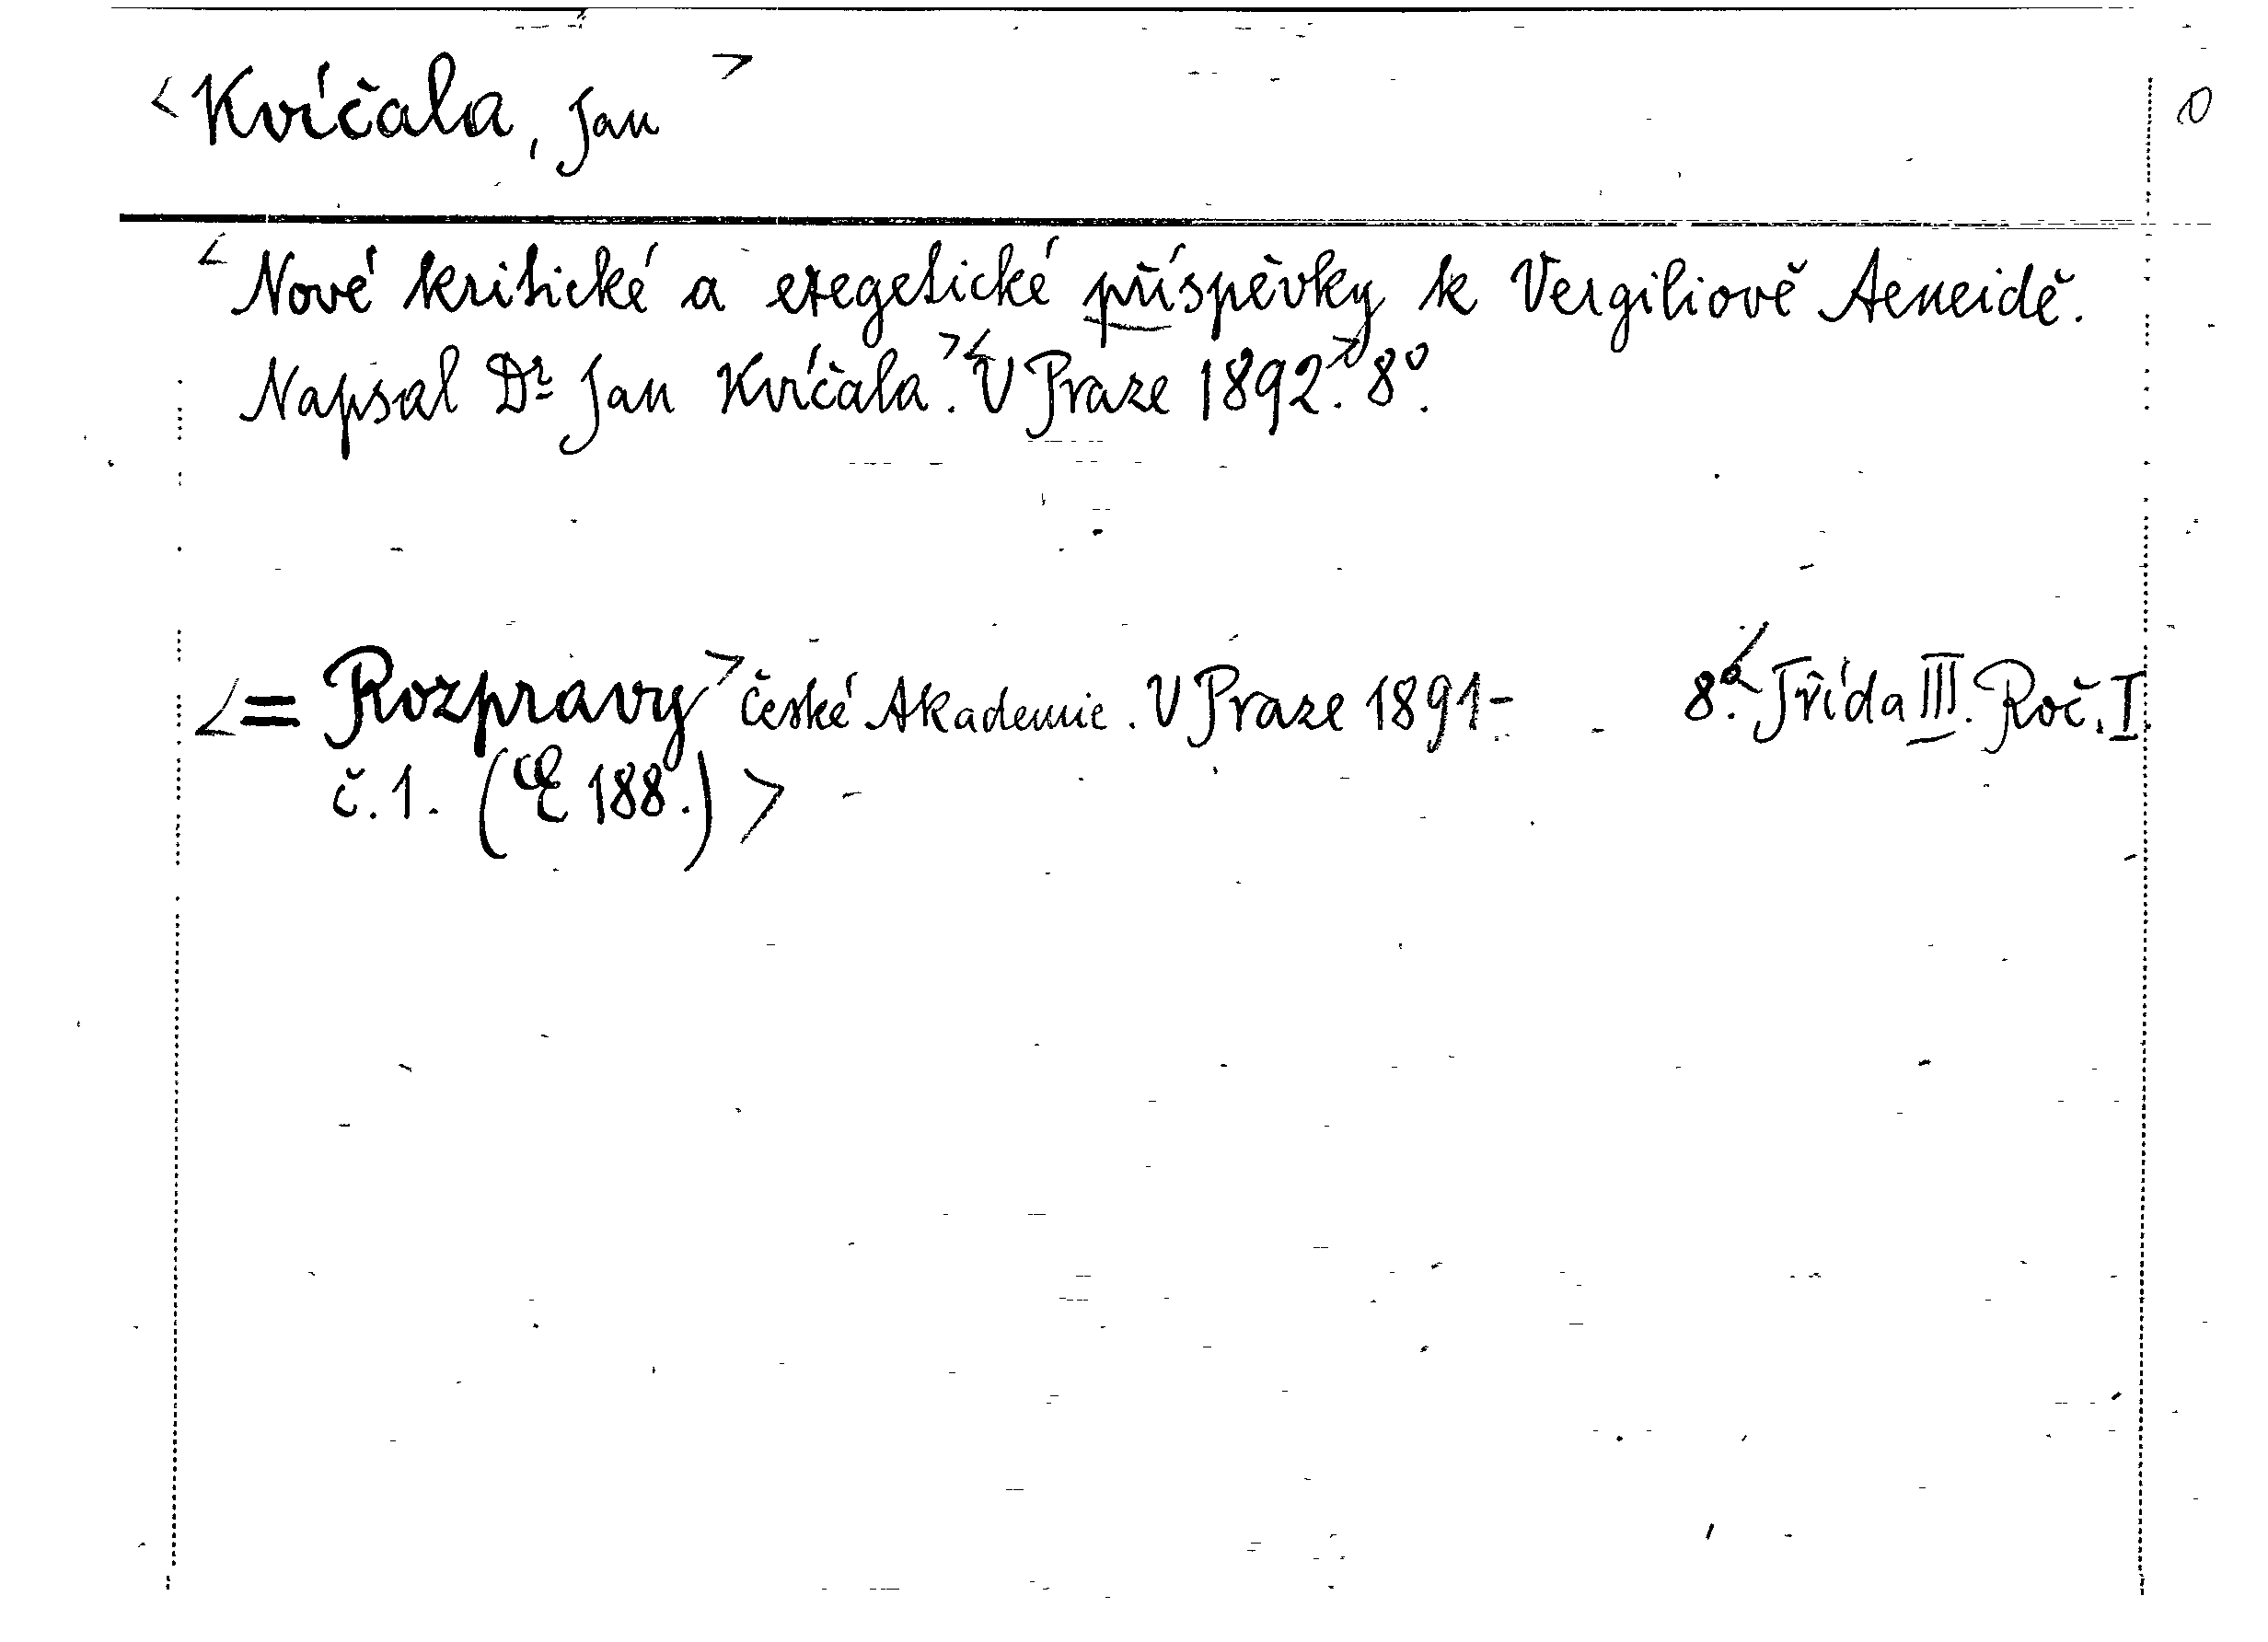 <Kvíčala, Jan> O
<Nové kritické a exegetické příspěvky k Vergiliově Aeneidě.
Napsal Dr. Jan Kvíčala.><V Praze 1892.> 8º.
<= Rozpravy> České Akademie. V Praze 1891- 8º.<Třída III. Roč. I.
č. 1. (E 188.)>